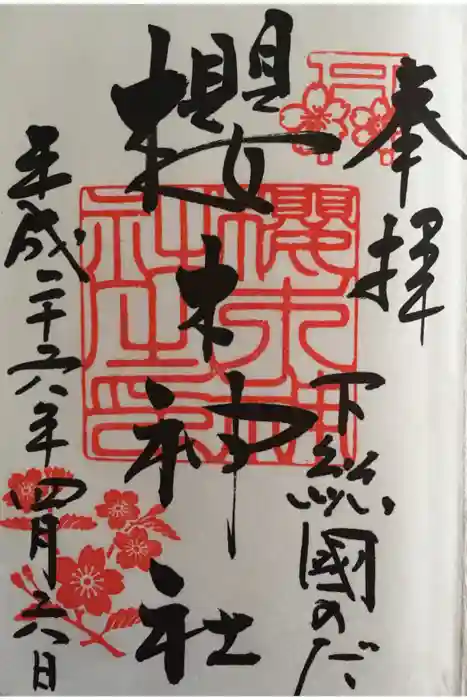 奉拝
下総國のだ
櫻木神社
平成二十六年四月二六日